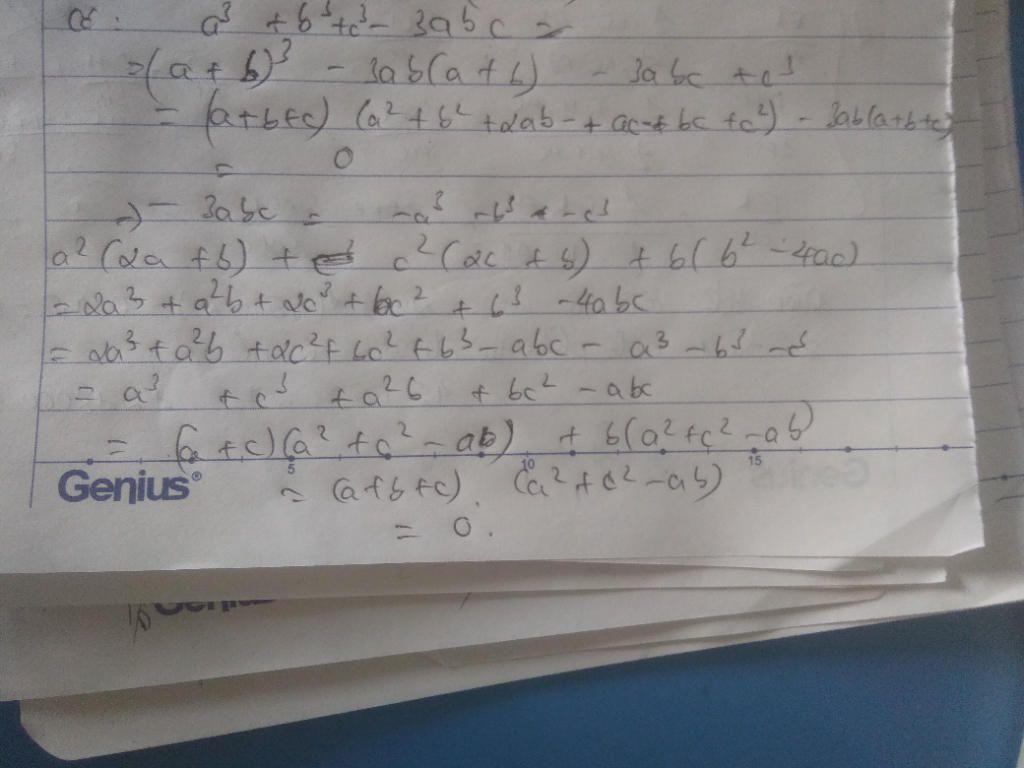 a³ + b³ + c³ - 3abc =
= (a + b)³ - 3ab(a + b) - 3abc + c³
= (a+b+c) (a² + b² + 2ab - + ac + bc + c²) - 3ab(a+b+c)
= 0
=> - 3abc = -a³ - b³ - c³
a²(2a + b) + c²(2c + b) + b(b² - 4ac)
= 2a³ + a²b + 2c³ + bc² + b³ - 4abc
= 2a³ + a²b + 2c² + bc² + b³ - abc - a³ - b³ - c³
= a³ + c³ + a²b + bc² - abc
= (a + c)(a² + c² - ab) + b(a² + c² - ab)
5 10 15
Genius® = (a+b+c). (a² + c² - ab)
= 0.